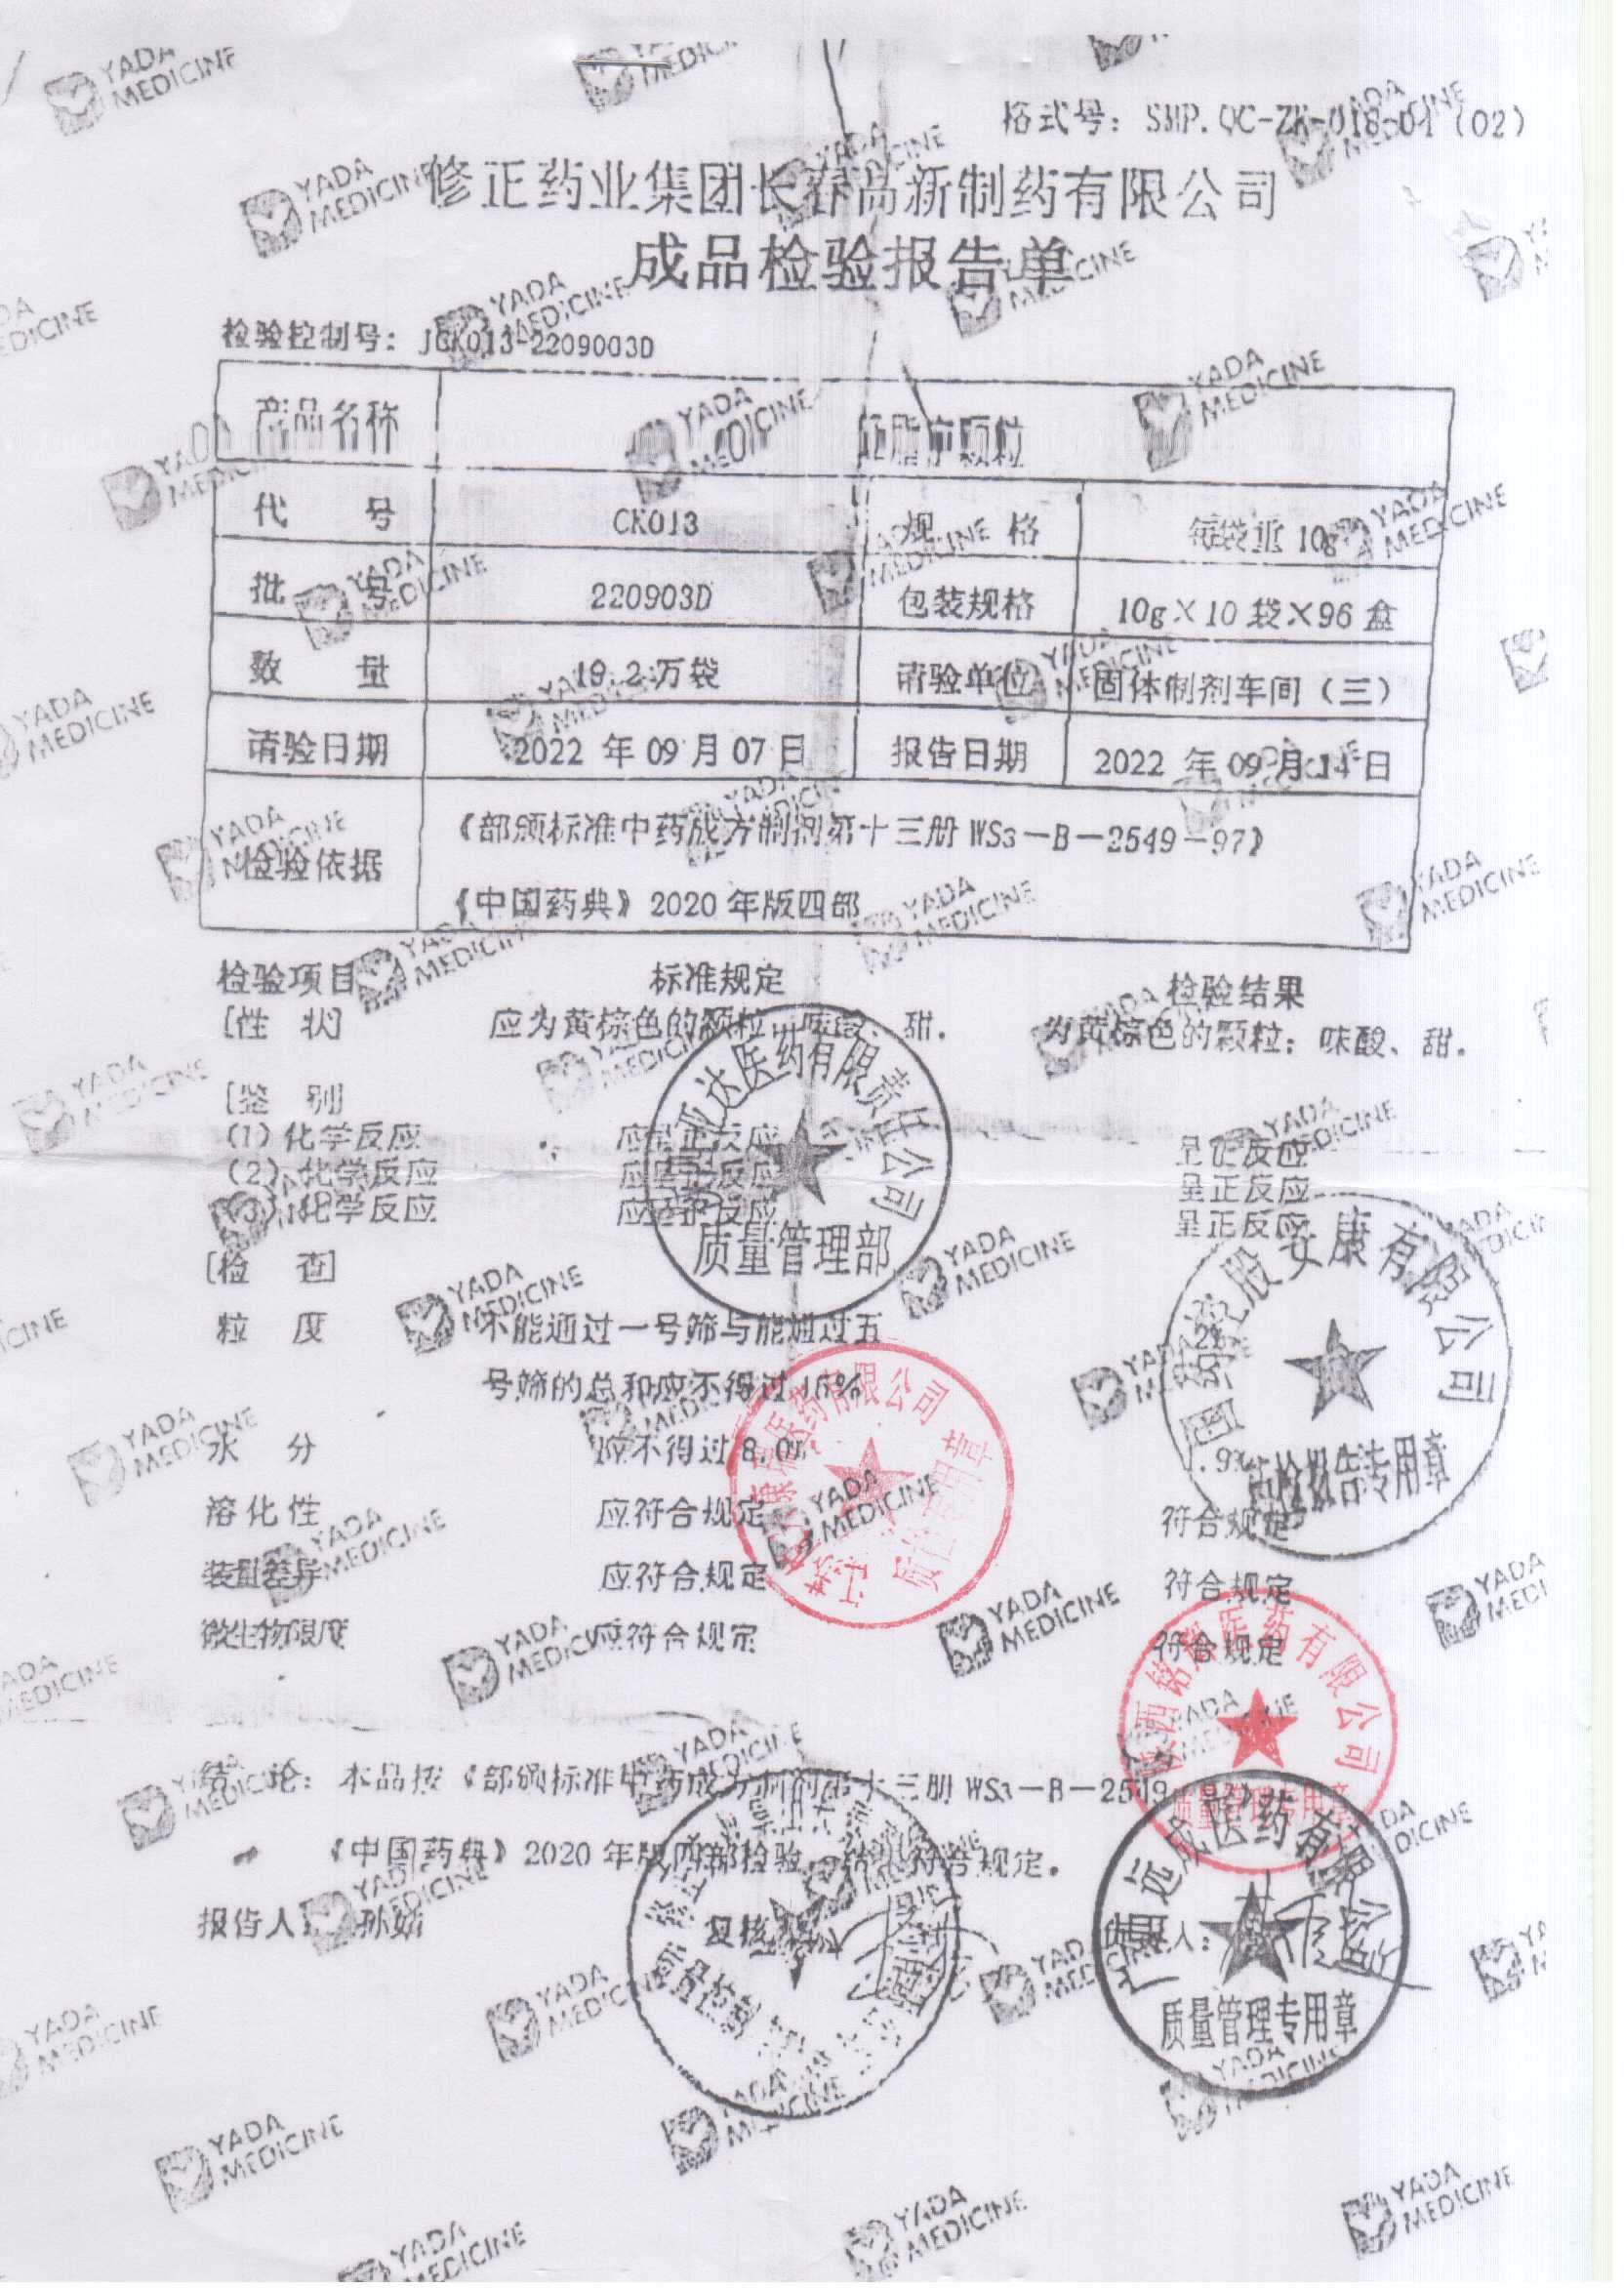 格式号：SMP.QC-ZK-018-01（02）
修正药业集团长春高新制药有限公司
成品检验报告单
检验控制号：JCK013-2209003D
产品名称 颗粒
代 号 CK013 规 格 每袋重 10g
批 号 220903D 包装规格 10g×10 袋×96 盒
数 量 19.2 万袋 请验单位 固体制剂车间（三）
请验日期 2022 年 09 月 07 日 报告日期 2022 年 09 月 14 日
检验依据 《部颁标准中药成方制剂第十三册 WS3－B－2549－97》
《中国药典》2020 年版四部
检验项目 标准规定 检验结果
[性 状] 应为黄棕色的颗粒；味酸、甜. 为黄棕色的颗粒；味酸、甜.
[鉴 别]
（1）化学反应 应呈正反应 呈正反应
（2）化学反应 应呈正反应 呈正反应
（3）化学反应 应呈正反应 呈正反应
[检 查]
粒 度 不能通过一号筛与能通过五
号筛的总和应不得过 15%
水 分 应不得过 8.0%
溶化性 应符合规定 符合规定
装量差异 应符合规定 符合规定
微生物限度 应符合规定 符合规定
结 论：本品按《部颁标准中药成方制剂第十三册 WS3－B－2549－97》
《中国药典》2020 年版四部检验，结果符合规定.
报告人： 复核人 人：
亚达医药有限责任公司
质量管理部
国药控股安康有限公司
质检报告专用章
医药有限公司
陕西铭 医药有限公司
质量管理专用章
医药有限公司
质量管理专用章
YADA
MEDICINE